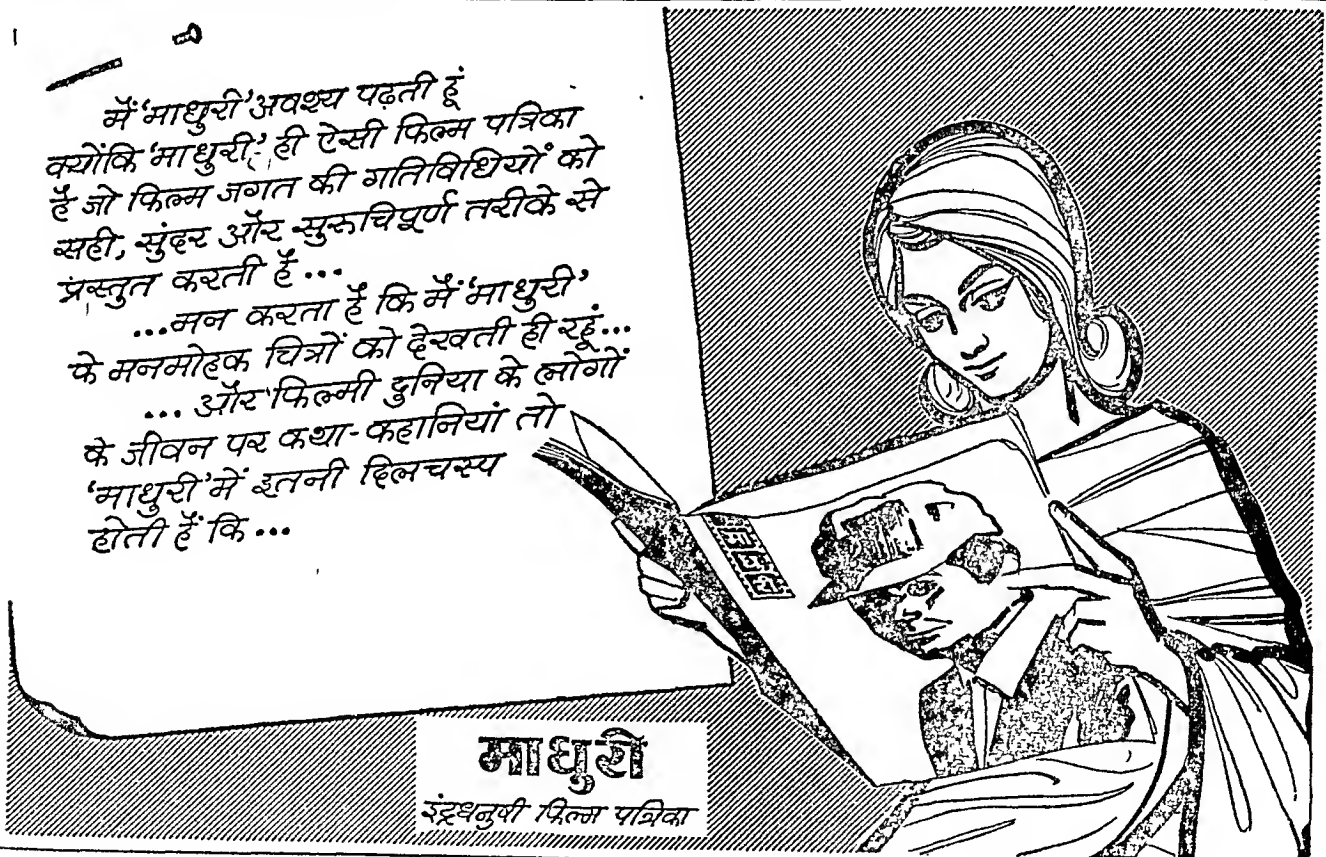 मैं 'माधुरी' अवश्य पढ़ती हूं
क्योंकि 'माधुरी' ही ऐसी फिल्म पत्रिका
है जो फिल्म जगत की गतिविधियों को
सही, सुंदर और सुरुचिपूर्ण तरीके से
प्रस्तुत करती है...
...मन करता है कि मैं 'माधुरी'
के मनमोहक चित्रों को देखती ही रहूं...
... और फिल्मी दुनिया के लोगों
के जीवन पर कथा-कहानियां तो
'माधुरी' में इतनी दिलचस्प
होती हैं कि...
माधुरी
इंद्रधनुषी फिल्म पत्रिका